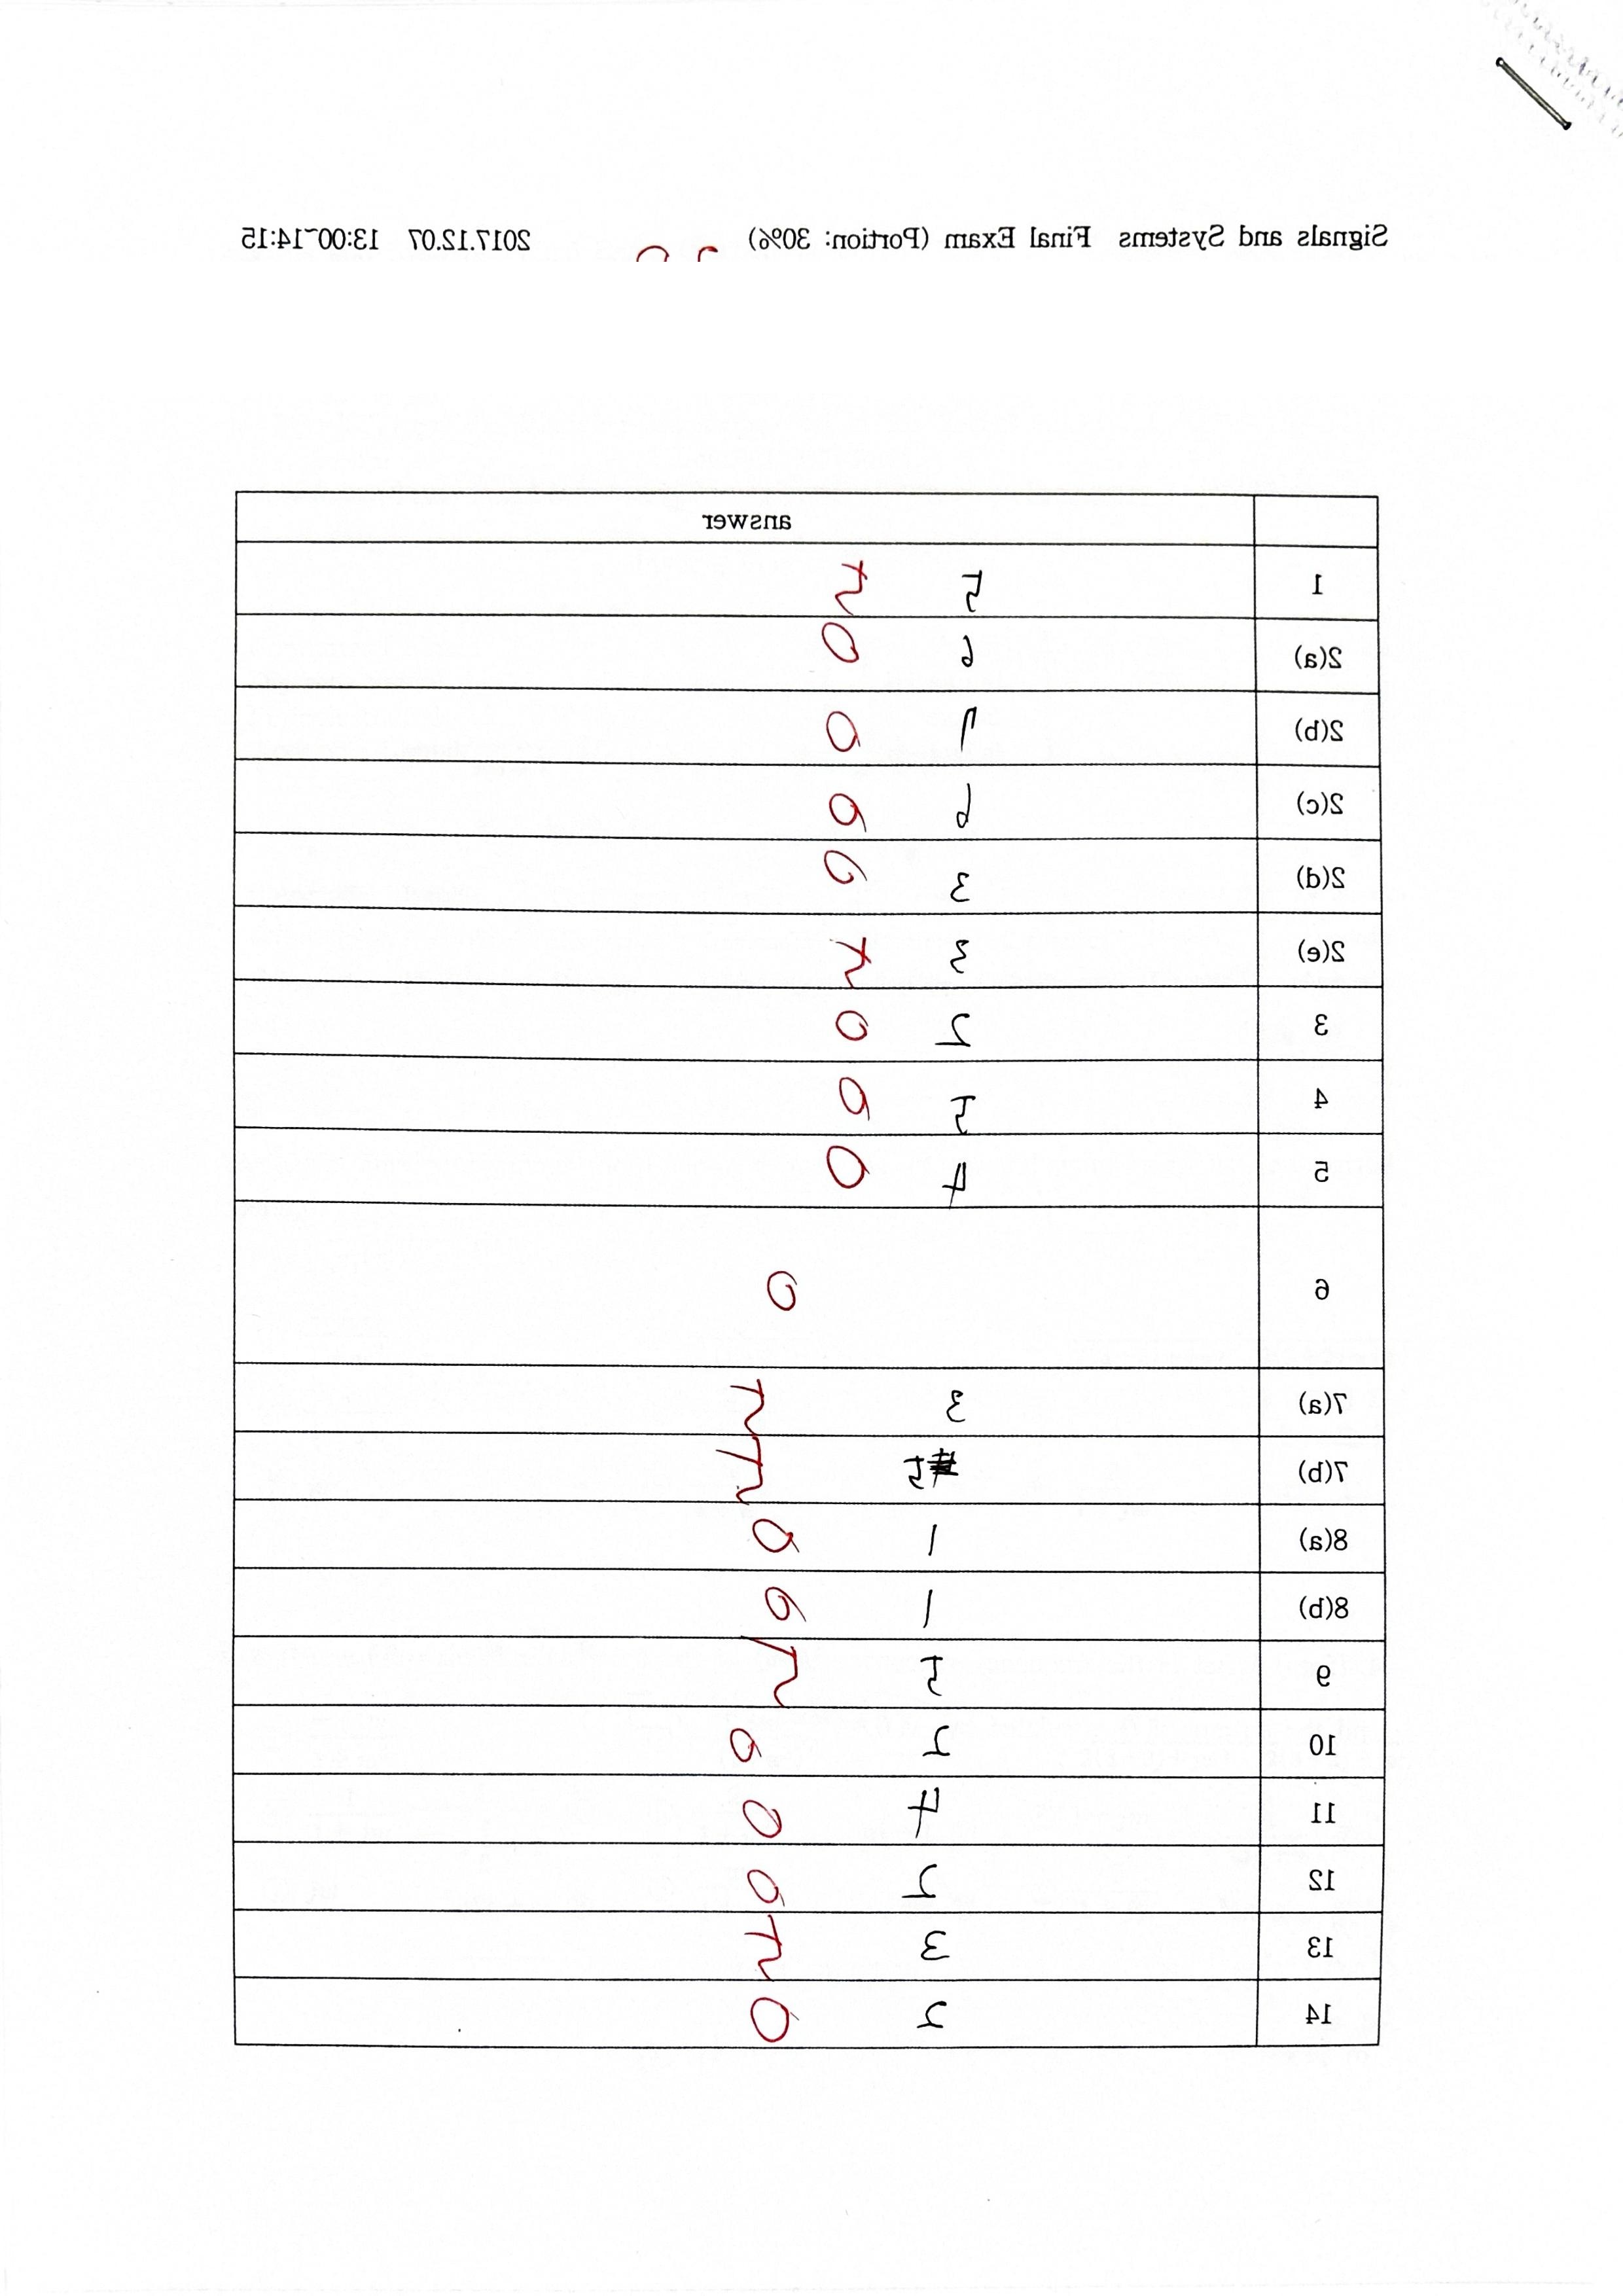 Signals and Systems Final Exam (Portion: 30%) 2017.12.07 13:00~14:15
answer
1 5
2(a) 6
2(b) 7
2(c) 6
2(d) 3
2(e) 3
3 2
4 5
5 4
6
7(a) 3
7(b) 5
8(a) 1
8(b) 1
9 5
10 2
11 4
12 2
13 3
14 2